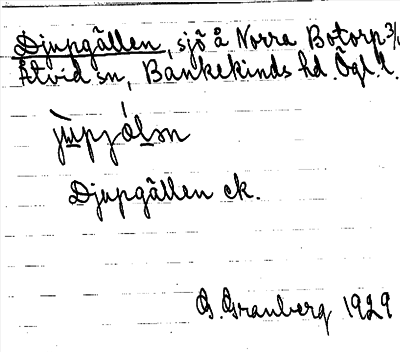 Djupgällen, sjö å Norra Botorp 3/1
Åtvid sn, Bankekinds hd. Ögl. l.
Djupgällen ek.
G. Granberg 1929